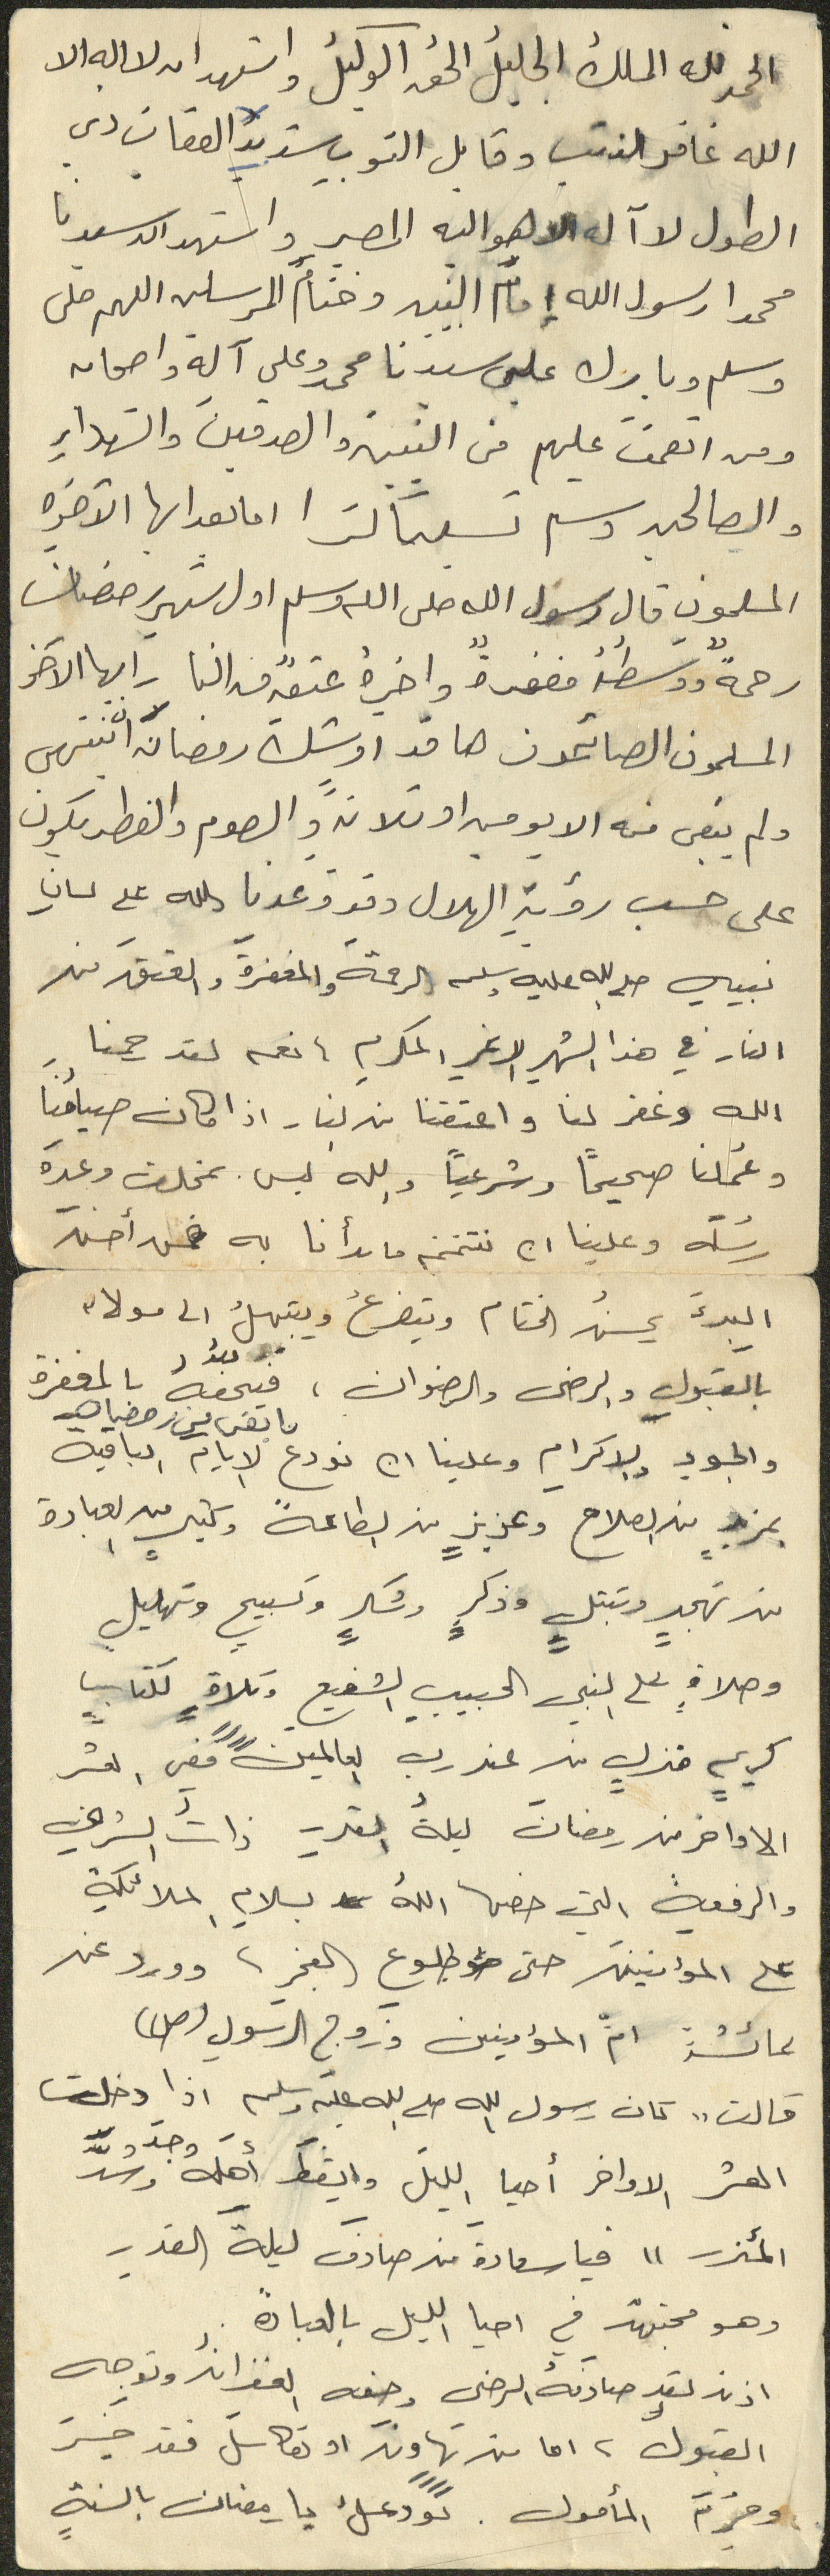 الحمد لله الملك الجليل الحق الوكيل واشهد ان لا اله الا
الله غافر الذنب وقابل التوب شديد العقاب ذي
الطول لا آله الا هو اليه المصير واشهد ان سيدنا
محمدا رسول الله إمام النبيين وختام المرسلين اللهم صلى
وسلم وبارك على سيدنا محمد وعلى آله واصحابه
ومن انعمت عليهم من النبيين والصدقين والشهداء
والصالحين وسلم تسليماً كثيرا اما بعد ايها الآخوه
المسلمون قال رسول الله صلى الله وسلم اول شهر رمضان
رحمةٌ ووسطُهُ مغفرةٌ واخيرهُ عتقٌ من النار ايها الاخوه
المسلمون الصائمون ها قد اوشك رمضان ان ينتهي
ولم يبقى منه الا يومين او ثلاثةً والصوم والفطر يكون
على حسب رؤيةِ الهلال وقد وعدنا الله على لسانِ
نبييه صلى الله عليه وسلم الرحمةَ والمغفرةَ والعتقَ من
النار في هذا الشهر الاغر المكرم، نعم لقد رحمنا
الله وغفر لنا واعتقنا من النار اذا كان صيامُنا
وعملُنا صحيحاً وشرعياً والله ليس بمخلف وعدَه
رسُلَه وعلينا ان نتمم ما بدأنا به فمن أحسن
البدءَ يحسنُ الختام ويتضرعُ ويبتهلُ الى مولاه
بالقبولِ والرضى والرضوان، فيحفهُ بالمغفرة
ما بقى من رمضان
والجود والاكرام وعلينا ان نودع الايام الباقية
بمزيدٍ من الصلاح وعزيزٍ من الطاعةً وكثيرٍ من العبادة
من تهجدٍ وتبتلٍ وذكرٍ وشكرٍ وتسبيحٍ وتهليلٍ
وصلاةٍ على النبي الحبيبِ الشفيع وتلاوةٍ لكتابٍ
كريمٍ منزلٍ من عند ربِ العالمين ففي العشر
الاواخر من رمضان ليلةُ القدرِ ذاتُ الشرفِ
والرفعةِ التي خصها اللهُ بسلامِ الملائكةِ
على المؤمنين حتى طلوع الفجرِ، وورد عن
عائشةَ امّ المؤمنين وزوج الرسول (ص)
قالت " كان رسول الله صلى الله عليه وسلم اذا دخلت
العشر الاواخر أحيا الليل وايقظَ أهلَهُ وجدَّ وشدَّ
المئزر " فيا سعادة من صادفَ ليلةَ القدرِ
وهو مجتهدٌ في احيا الليل بالعبادةً.
اذن لقد صادفَهُ الرضى وحفه الغفرانُ وتوجه
القبولُ، اما من تهاونَ او تكاسلَ فقد خسرَ
وحرِمَ المأمول. نودعكُ يا رمضان بالسنةٍ